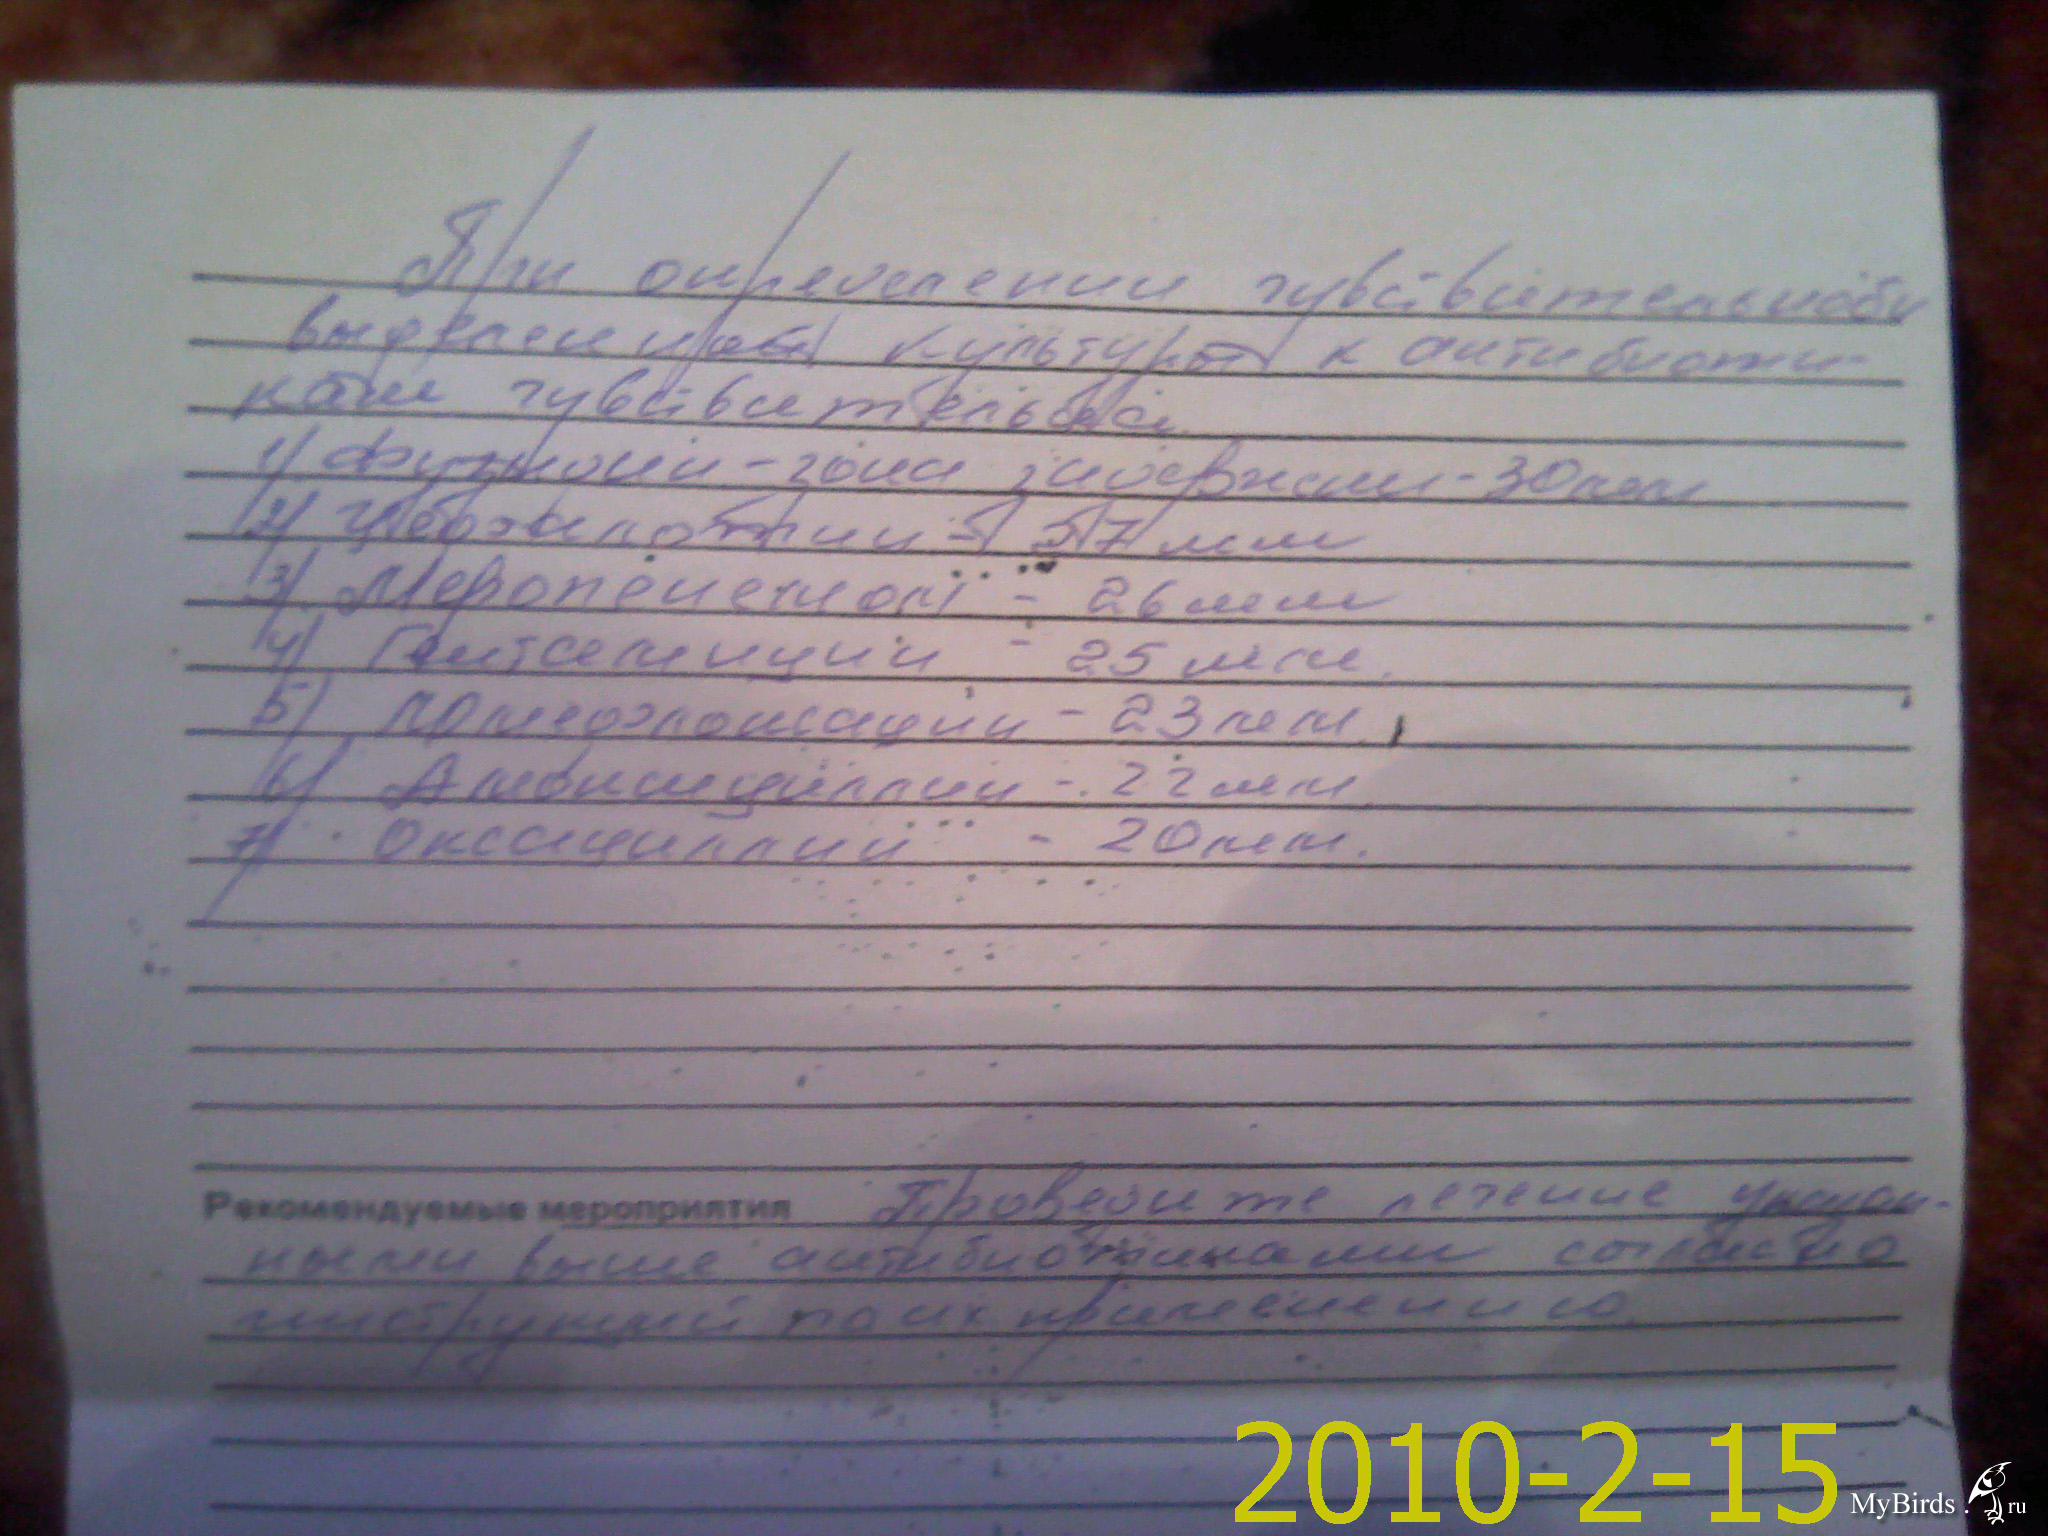 При определении чувствительности
выделенной культуры к антибиоти-
кам чувствительна
1) зона задержки - 30 мм
2) Цефалотин - 27 мм
3) Меропенем - 26 мм
4) Гентамицин - 25 мм.
5) - 23 мм.
6) Амоксициллин - 22 мм.
7) Оксациллин - 20 мм.
Рекомендуемые мероприятия Проведите лечение указан-
ными выше антибиотиками согласно
инструкций по их применению.
2010-2-15
MyBirds.ru